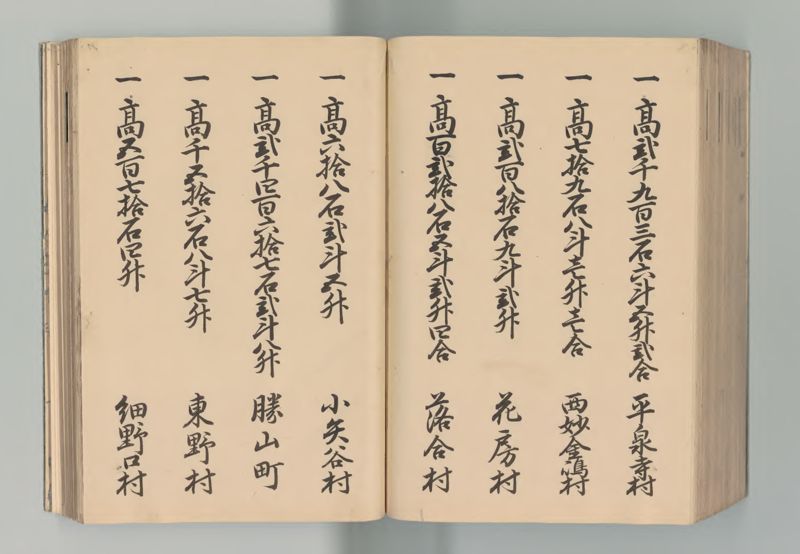 一 高弐千九百三石六斗五升弐合 平泉寺村
一 高七拾九石八斗壱升壱合 西妙金嶋村
一 高弐百八拾石九斗弐升 花房村
一 高百弐拾八石五斗弐升四合 落合村
一 高六拾八石弐斗五升 小矢谷村
一 高弐千四百六拾七石弐斗八升 勝山町
一 高千五拾六石八斗七升 東野村
一 高五百七拾石四升 細野口村